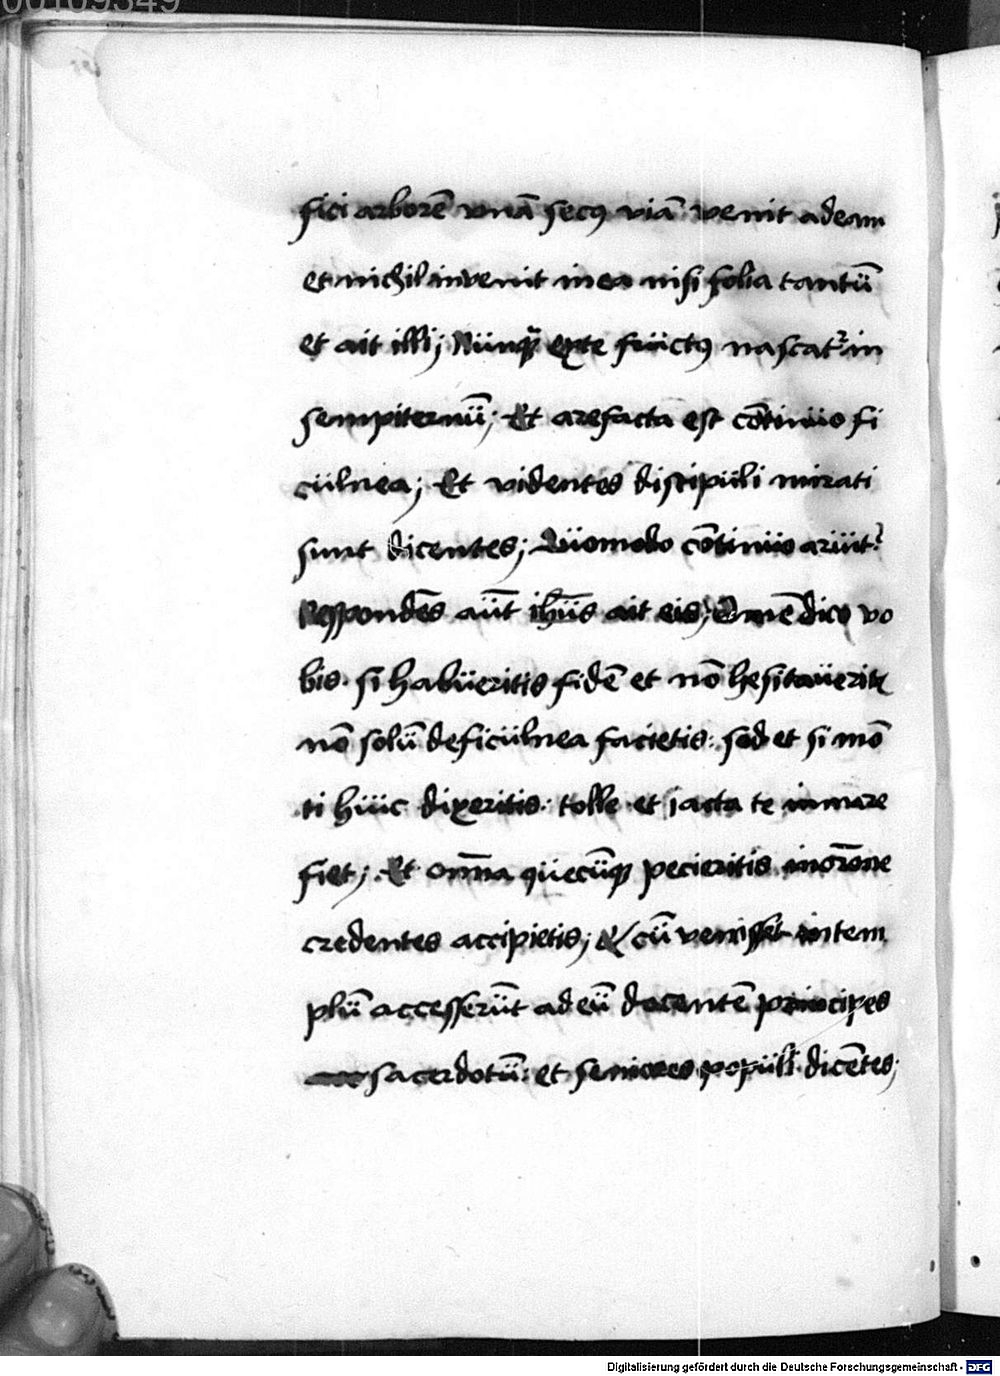 00109349
fici arborē vnā secꝰ viā venit ad eam
et nichil invenit in ea nisi folia tantū
et ait illi; Nünqꝫ exte früctꝰ nascatꝛ in
sempiternü; Et arefacta est cōtinüo fi
cülnea; Et videntes discipüli mirati
sunt dicentes; Qüomodo cōtinüo arüit?
Respondēs aüt ihüs ait eis; Amē dico vo
bis. si habüeritis fidē et nō hesitaüeritis
nō solü de ficülnea facietis: sed et si mō
ti hüic dixeritis: tolle et iacta te in mare
fiet; Et om̄a qüecūqꝫ pecieritis in orōne
credentes accipietis; Et cū venisset in tem
plū accesserūt ad eū docentē principes
sacerdotū: et seniores popüli dicētes;
Digitalisierung gefördert durch die Deutsche Forschungsgemeinschaft - DFG